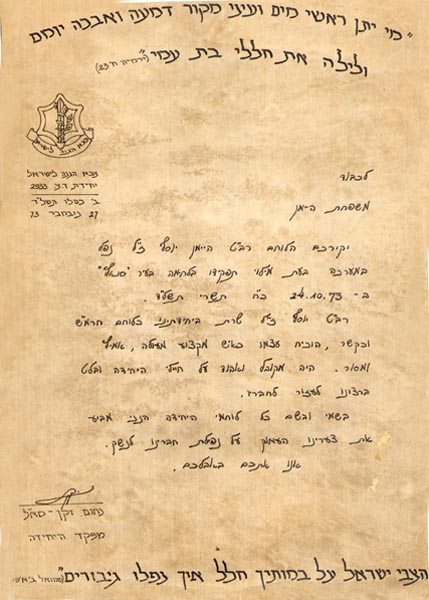 "מי יתן ראשי מים ועיני מקור דמעה ואבכה יומם
ולילה את חללי בת עמי" (ירמיה ח' 23)
צבא הגנה לישראל
צבא הגנה לישראל
יחידת ד.צ. 2933
ב' כסלו תשל"ד
27 נובמבר 73
לכבוד
משפחת היימן
יקירכם הלוחם רב"ט היימן יוסף ז"ל נפל
במערכה בעת מילוי תפקידו בלחימה בעיר "סואץ"
ב- 24.10.73 כ"ח תשרי תשל"ד.
רב"ט יוסף ז"ל שרת ביחידתינו כלוחם חרמ"ש
וכקשר, הוכיח עצמו כאיש מקצוע מעולה, אמיץ
ומסור. היה מקובל ואהוד על חיילי היחידה ובלט
ברצונו לעזור לחבריו.
בשמי ובשם כל לוחמי היחידה הנני מביע
את צערינו העמוק על נפילת חברינו לנשק.
אנו אתכם באבלכם.
נחום זקן - סא"ל
מפקד היחידה
הצבי ישראל על במותיך חלל איך נפלו גיבורים" (שמואל ב' א'